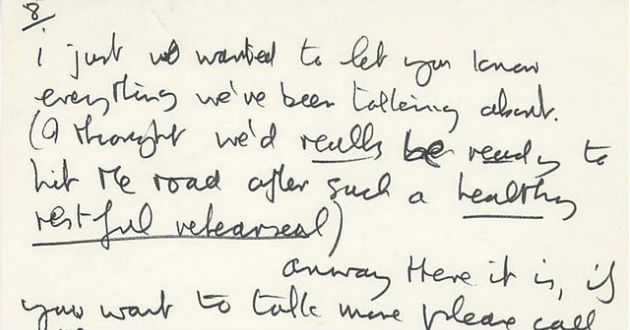 8/
i just wanted to let you know
everything we've been talking about.
(I thought we'd really be ready to
hit the road after such a healthy
restful rehearsal)
anway Here it is, if
you want to talk more please call